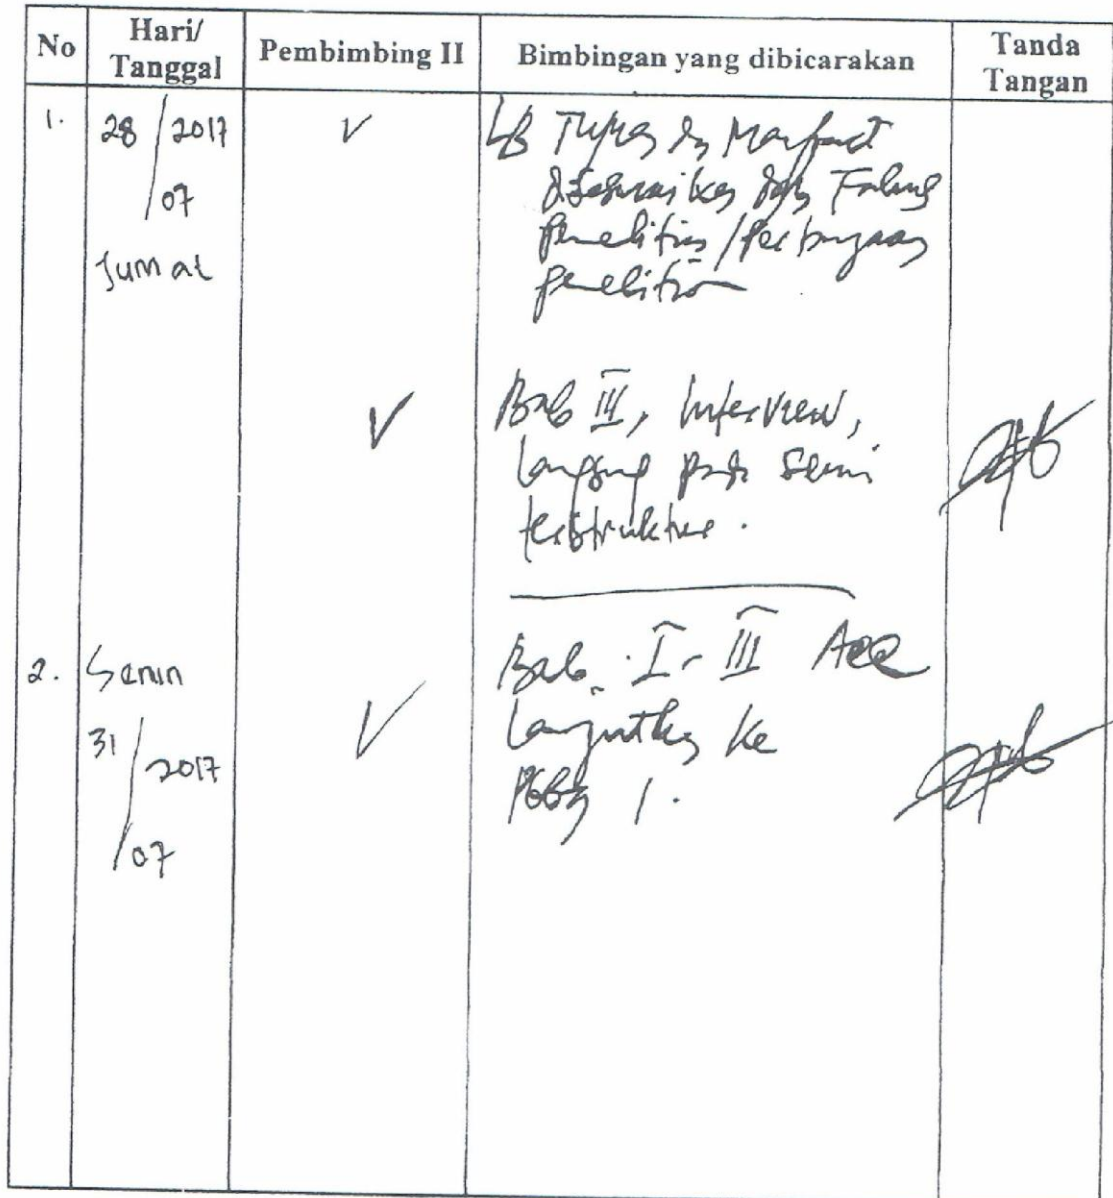 No Hari/ Tanggal Pembimbing II Bimbingan yang dibicarakan Tanda Tangan
1. 28/2017 V LB Tujuan dn Manfaat
/07 disesuaikan dgn
Jumat penelitian/pertanyaan
penelitian
V Bab III, Interview,
langsung semi
terstruktur.
2. Senin Bab. I - III Acc
31/2017 V Lanjutkan Ke
/07 1.